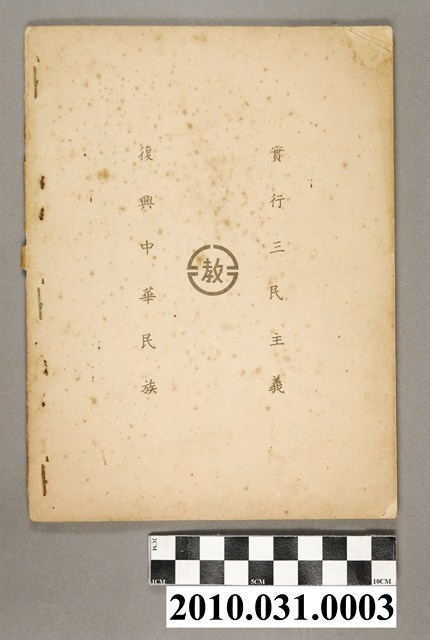 實行三民主義
教
復興中華民族
2CM
1CM 5CM 10CM
2010.031.0003